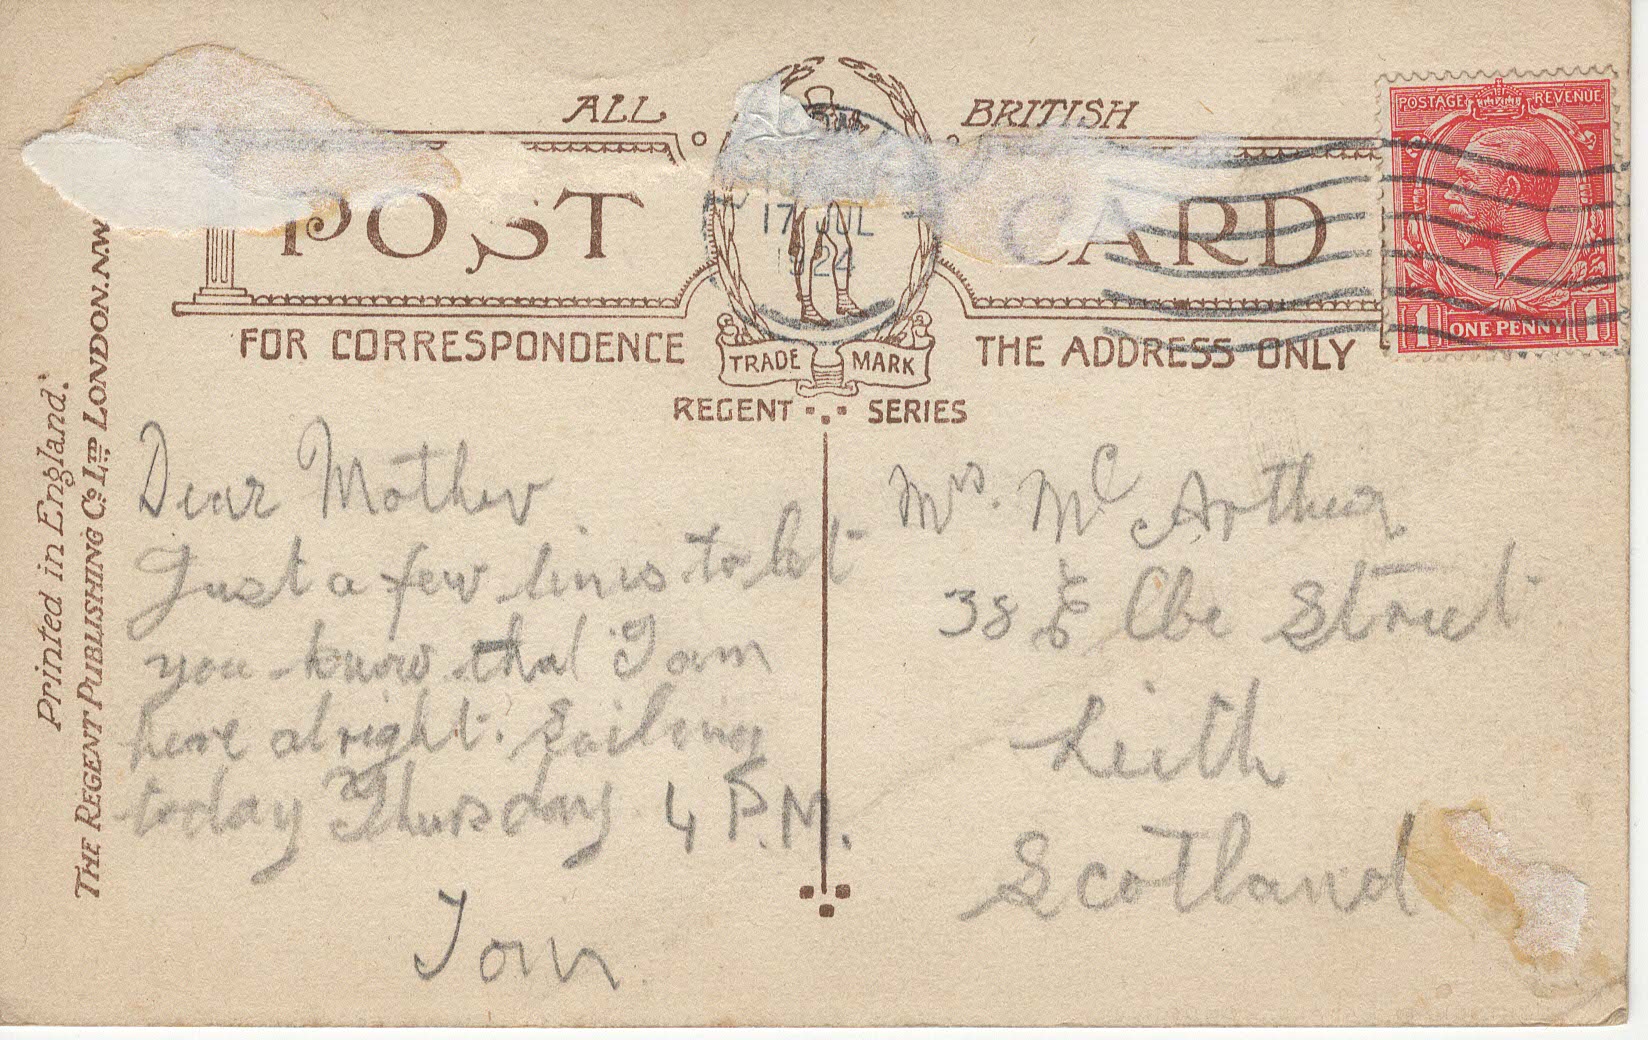 ALL BRITISH
POST CARD
POSTAGE REVENUE
ONE PENNY
1 1
17 JUL
1924
FOR CORRESPONDENCE THE ADDRESS ONLY
TRADE MARK
REGENT SERIES
Printed in England.
THE REGENT PUBLISHING Co LTD LONDON. N.W
Dear Mother
Just a few lines to let
you know that I am
here alright. Sailing
today Thursday 4 P.M.
Tom.
Mrs. Mc Arthur
38 Street
Leith
Scotland